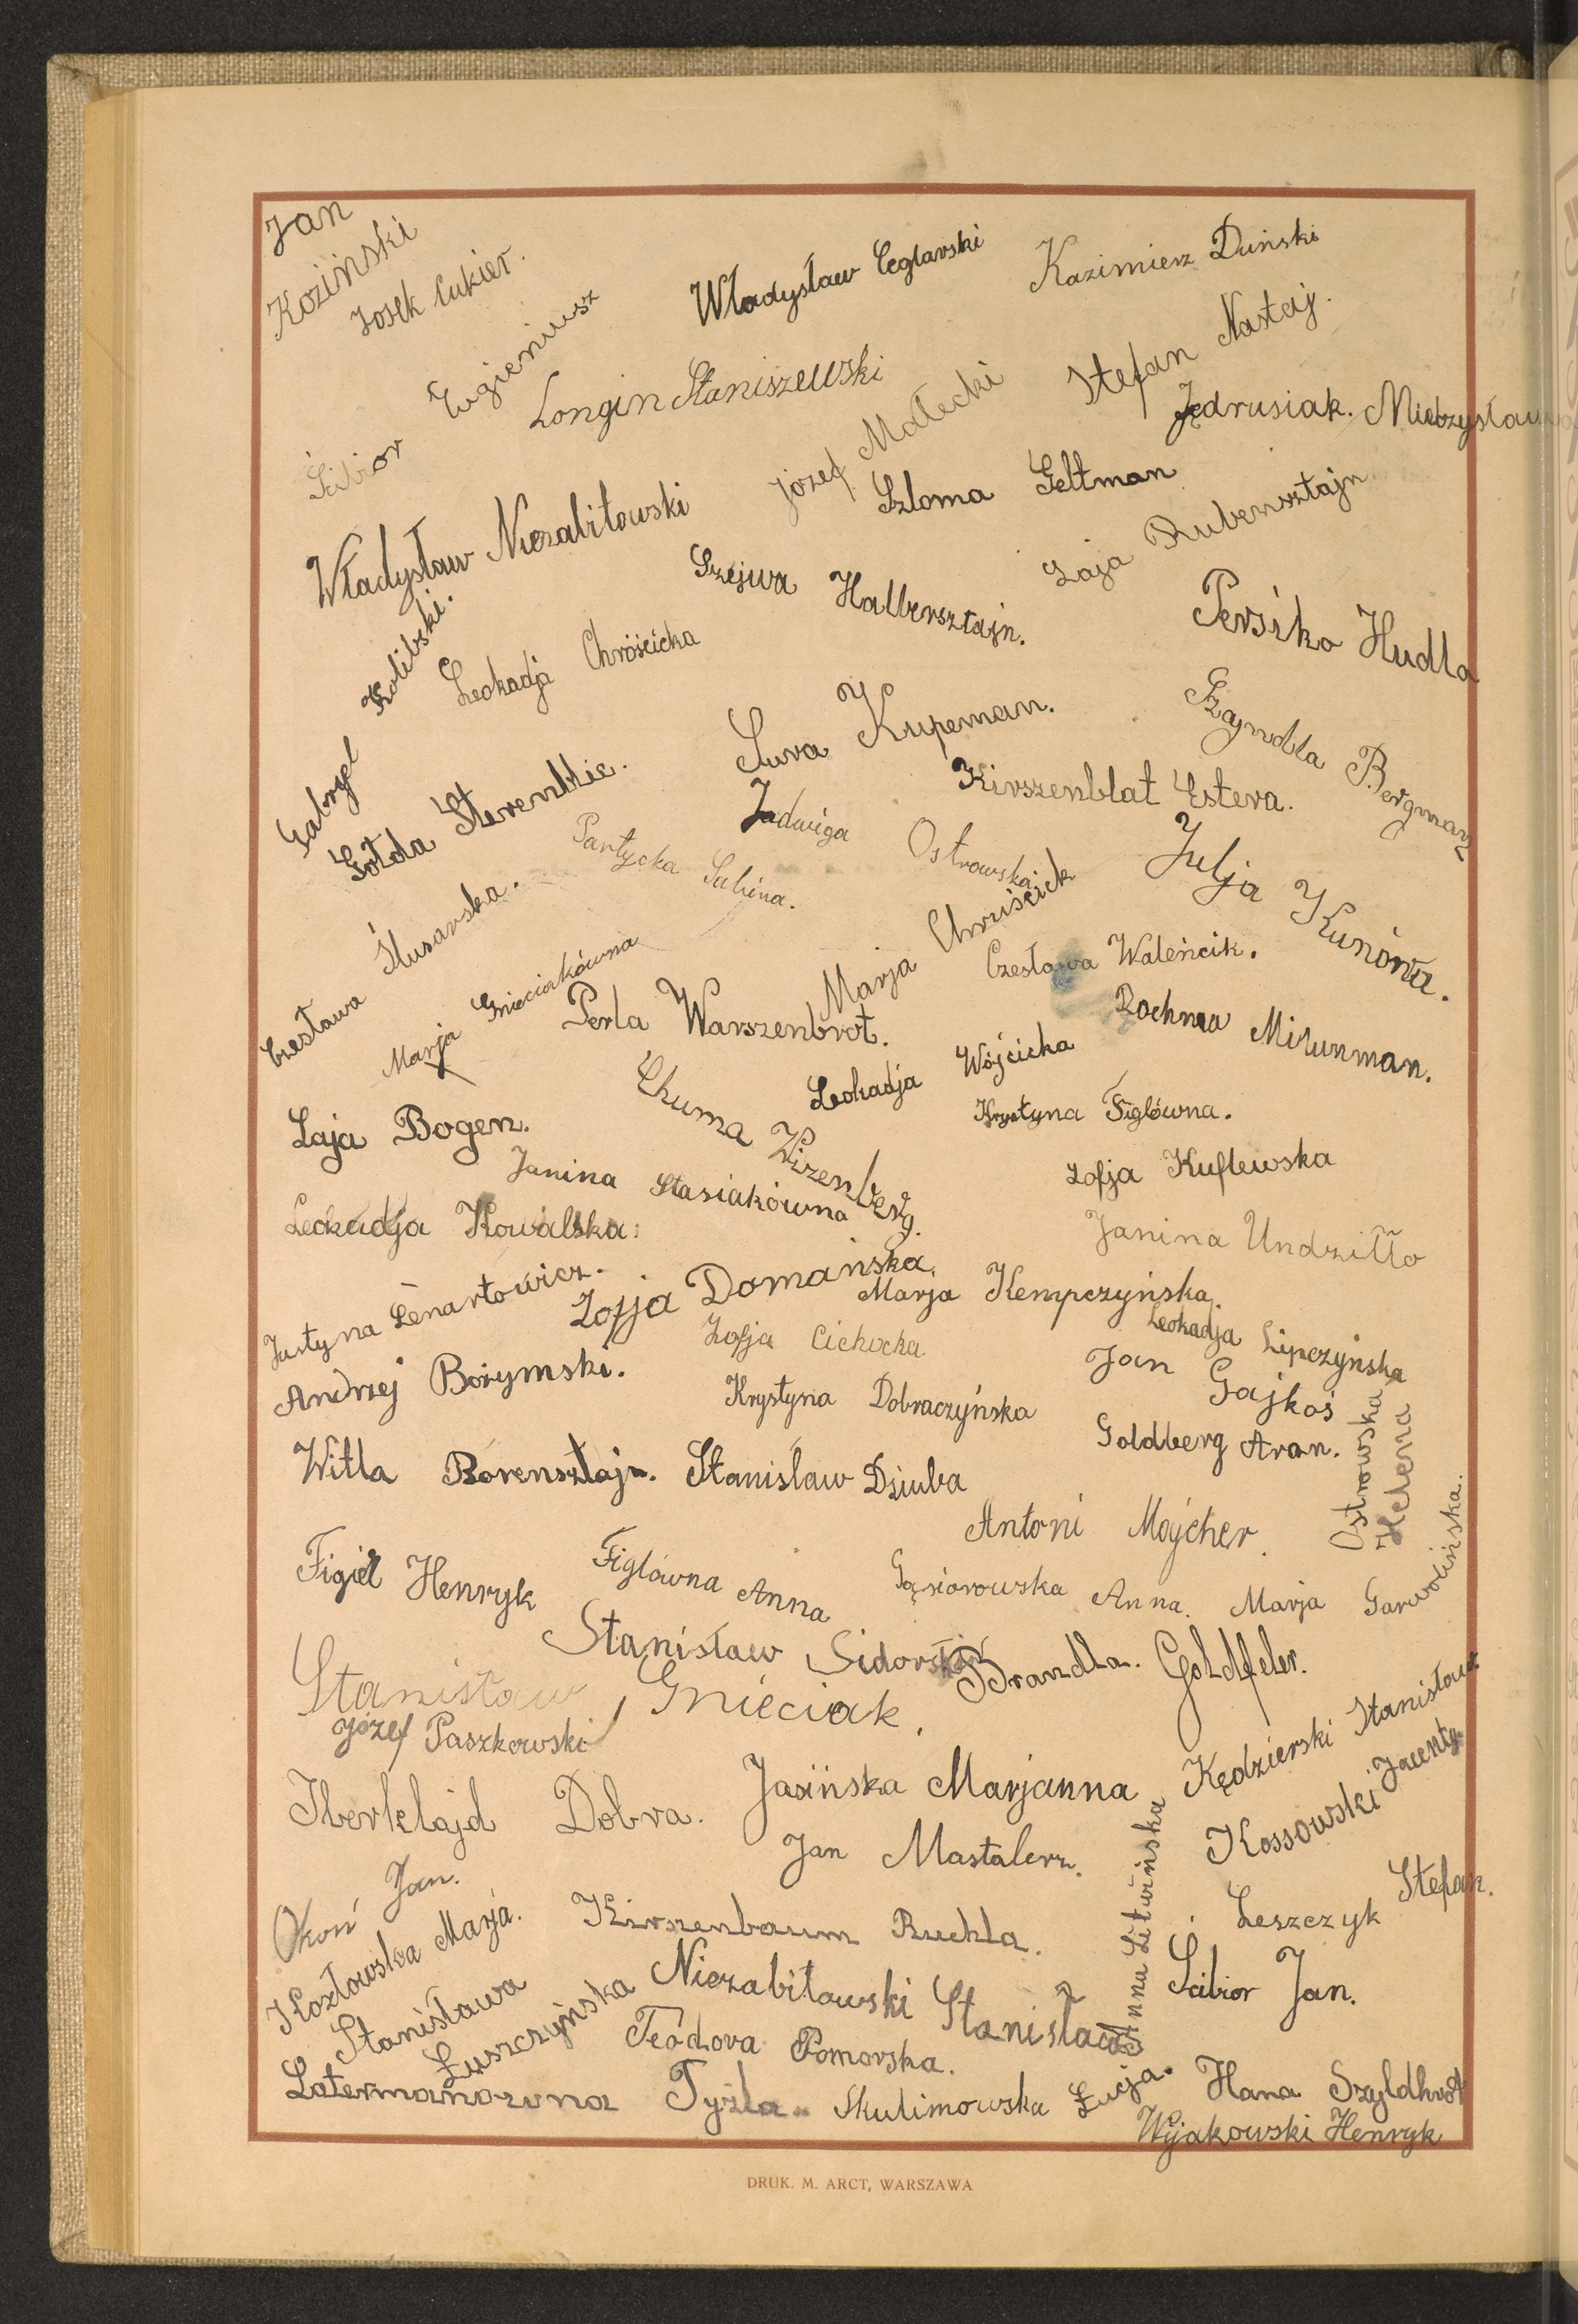 Jan
Koziński
Josek Cukier.
Władysław Ceglarski
Kazimierz Duński
Ścibior Eugieniusz
Longin Staniszewski
Józef Małecki
Stefan Nastaj.
Jędrusiak. Mieczysław
Władysław Niezabitowski
Szloma Geltman
Łaja Rubensztajn
Szejwa Halbersztajn.
Persiko Hudla
Gabryel Kolibski.
Leokadja Chróścicka
Sura Kupeman.
Szajndla Bergmanz
Gołda Sterenblic.
Jadwiga Ostrowska
Kirszenblat Estera.
Partycka Sabina.
Julja Kunówa.
Czesława Ślusarska.
Marja Chruścick
Czesława Waleńcik.
Marja Gnieciakówna
Perla Warszenbrot.
Rochma Mizunman.
Leokadja Wójcicka
Chuma Wizenberg.
Krystyna Figlówna.
Łaja Bogen.
Janina Stasiakówna
Zofja Kuflewska
Leokadja Kowalska.
Janina Undziłło
Justyna Lenartowicz.
Zofja Domańska.
Marja Kempczyńska.
Leokadja Lipczyńska
Zofja Cichocka
Andrzej Borymski.
Jan Gajkoś
Krystyna Dobraczyńska
Goldberg Aran.
Ostrowska Helena
Witla Borensztajn. Stanisław Dziuba
Antoni Majcher.
Figiel Henryk
Figlówna Anna
Gąsiorowska Anna.
Marja Garwolińska.
Stanisław Sidorski
Brandla. Goldfeler.
Stanisław Gnieciak.
Józef Paszkowski
Kędzierski Stanisław
Jasińska Marjanna
Iberklajd Dobra.
Kossowski Jacenty.
Jan Mastalerz.
Okoń Jan.
Anna Litwińska
Leszczyk Stefan.
Kozłowska Marja.
Kirszenbaum Ruchla.
Ścibior Jan.
Stanisława Łuszczyńska
Niezabitowski Stanisław
Teodora Pomorska.
Latermanozuna Tyzla.
Skulimowska Łucja.
Hana Szyldkrot
Wyjakowski Henryk
DRUK. M. ARCT, WARSZAWA